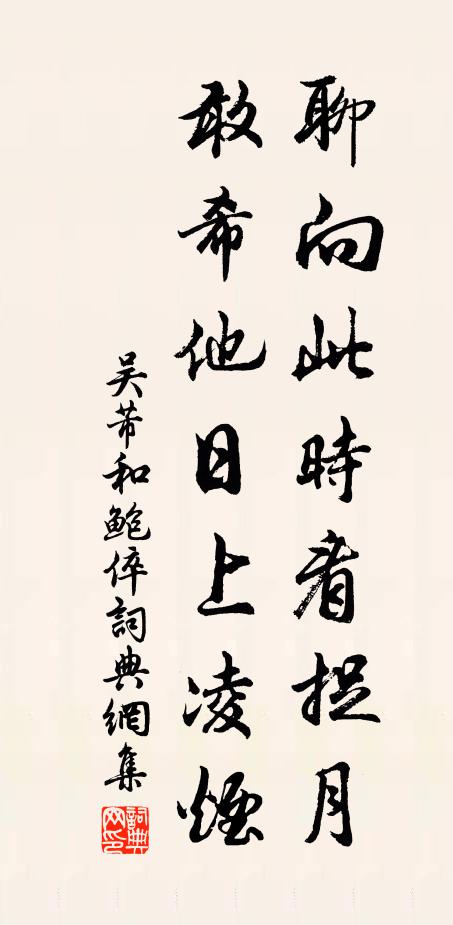 聊向此時看捉月
敢希他日上凌煙
吳芾和鮑倅詞典網集
詞典網印